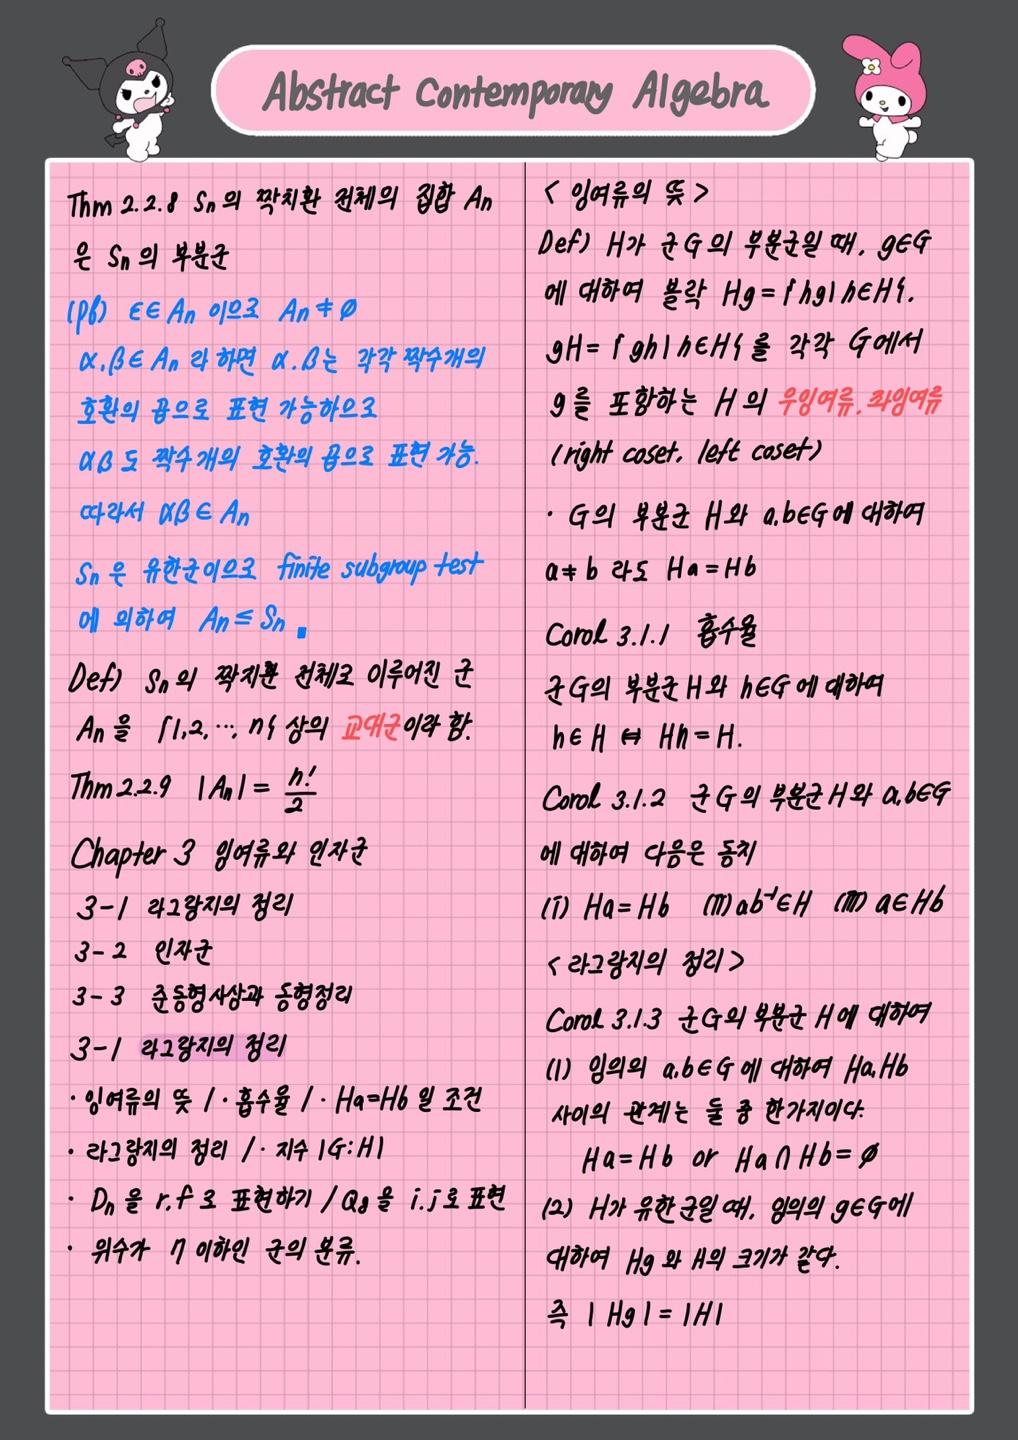 Abstract Contemporary Algebra
Thm 2.2.8 Sn의 짝치환 전체의 집합 An
은 Sn의 부분군
(pf) ε∈An 이므로 An ≠ ∅
α,β∈An 라 하면 α,β는 각각 짝수개의
호환의 곱으로 표현 가능하므로
αβ도 짝수개의 호환의 곱으로 표현 가능.
따라서 αβ∈An
Sn은 유한군이므로 finite subgroup test
에 의하여 An ≤ Sn ■
Def) Sn의 짝치환 전체로 이루어진 군
An을 {1,2,⋯,n} 상의 교대군이라 함.
Thm 2.2.9 |An| = n!/2
Chapter 3 잉여류와 인자군
3-1 라그랑지의 정리
3-2 인자군
3-3 준동형사상과 동형정리
3-1 라그랑지의 정리
· 잉여류의 뜻 / · 흡수율 / · Ha=Hb 일 조건
· 라그랑지의 정리 / · 지수 |G:H|
· Dn을 r,f로 표현하기 / Q8을 i,j로 표현
· 위수가 7 이하인 군의 분류.
< 잉여류의 뜻 >
Def) H가 군 G의 부분군일 때, g∈G
에 대하여 블락 Hg = {hg | h∈H},
gH = {gh | h∈H} 를 각각 G에서
g를 포함하는 H의 우잉여류, 좌잉여류
(right coset, left coset)
· G의 부분군 H와 a,b∈G에 대하여
a≠b 라도 Ha = Hb
Corol 3.1.1 흡수율
군 G의 부분군 H와 h∈G에 대하여
h∈H ⇔ Hh = H.
Corol 3.1.2 군 G의 부분군 H와 a,b∈G
에 대하여 다음은 동치
(i) Ha = Hb (ii) ab⁻¹∈H (iii) a∈Hb
< 라그랑지의 정리 >
Corol 3.1.3 군 G의 부분군 H에 대하여
(1) 임의의 a,b∈G에 대하여 Ha,Hb
사이의 관계는 둘 중 한가지이다.
Ha = Hb or Ha ∩ Hb = ∅
(2) H가 유한군일 때, 임의의 g∈G에
대하여 Hg와 H의 크기가 같다.
즉 |Hg| = |H|